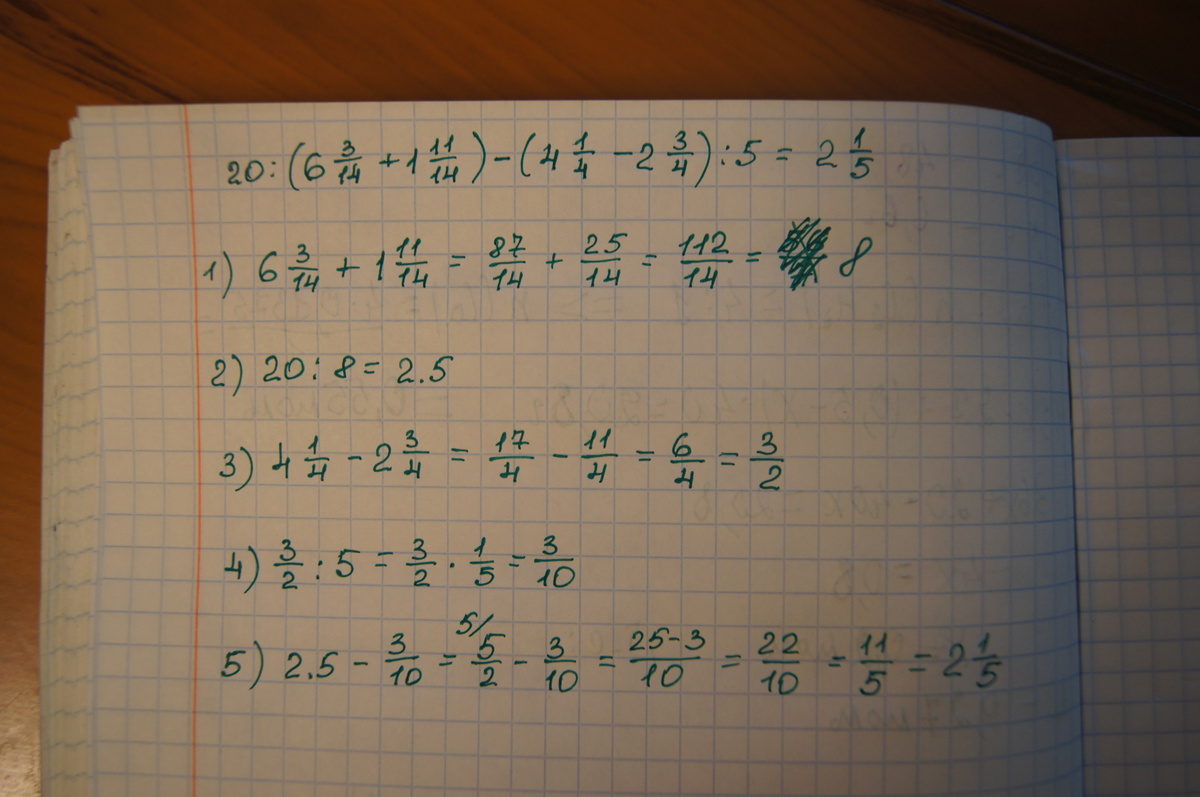 20:(6 3/14 + 1 11/14) - (4 1/4 - 2 3/4) : 5 = 2 1/5
1) 6 3/14 + 1 11/14 = 87/14 + 25/14 = 112/14 = 8
2) 20 : 8 = 2.5
3) 4 1/4 - 2 3/4 = 17/4 - 11/4 = 6/4 = 3/2
4) 3/2 : 5 = 3/2 · 1/5 = 3/10
5) 2.5 - 3/10 = 5/ 5/2 - 3/10 = 25-3/10 = 22/10 = 11/5 = 2 1/5